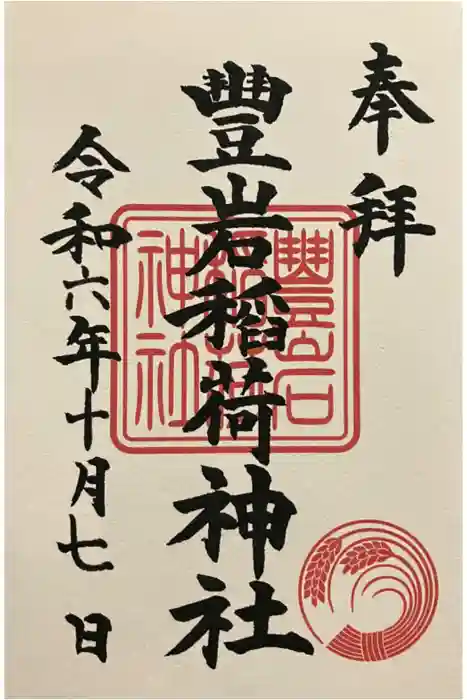 奉拝
豐岩稲荷神社
豐岩稲荷神社
令和六年十月七日